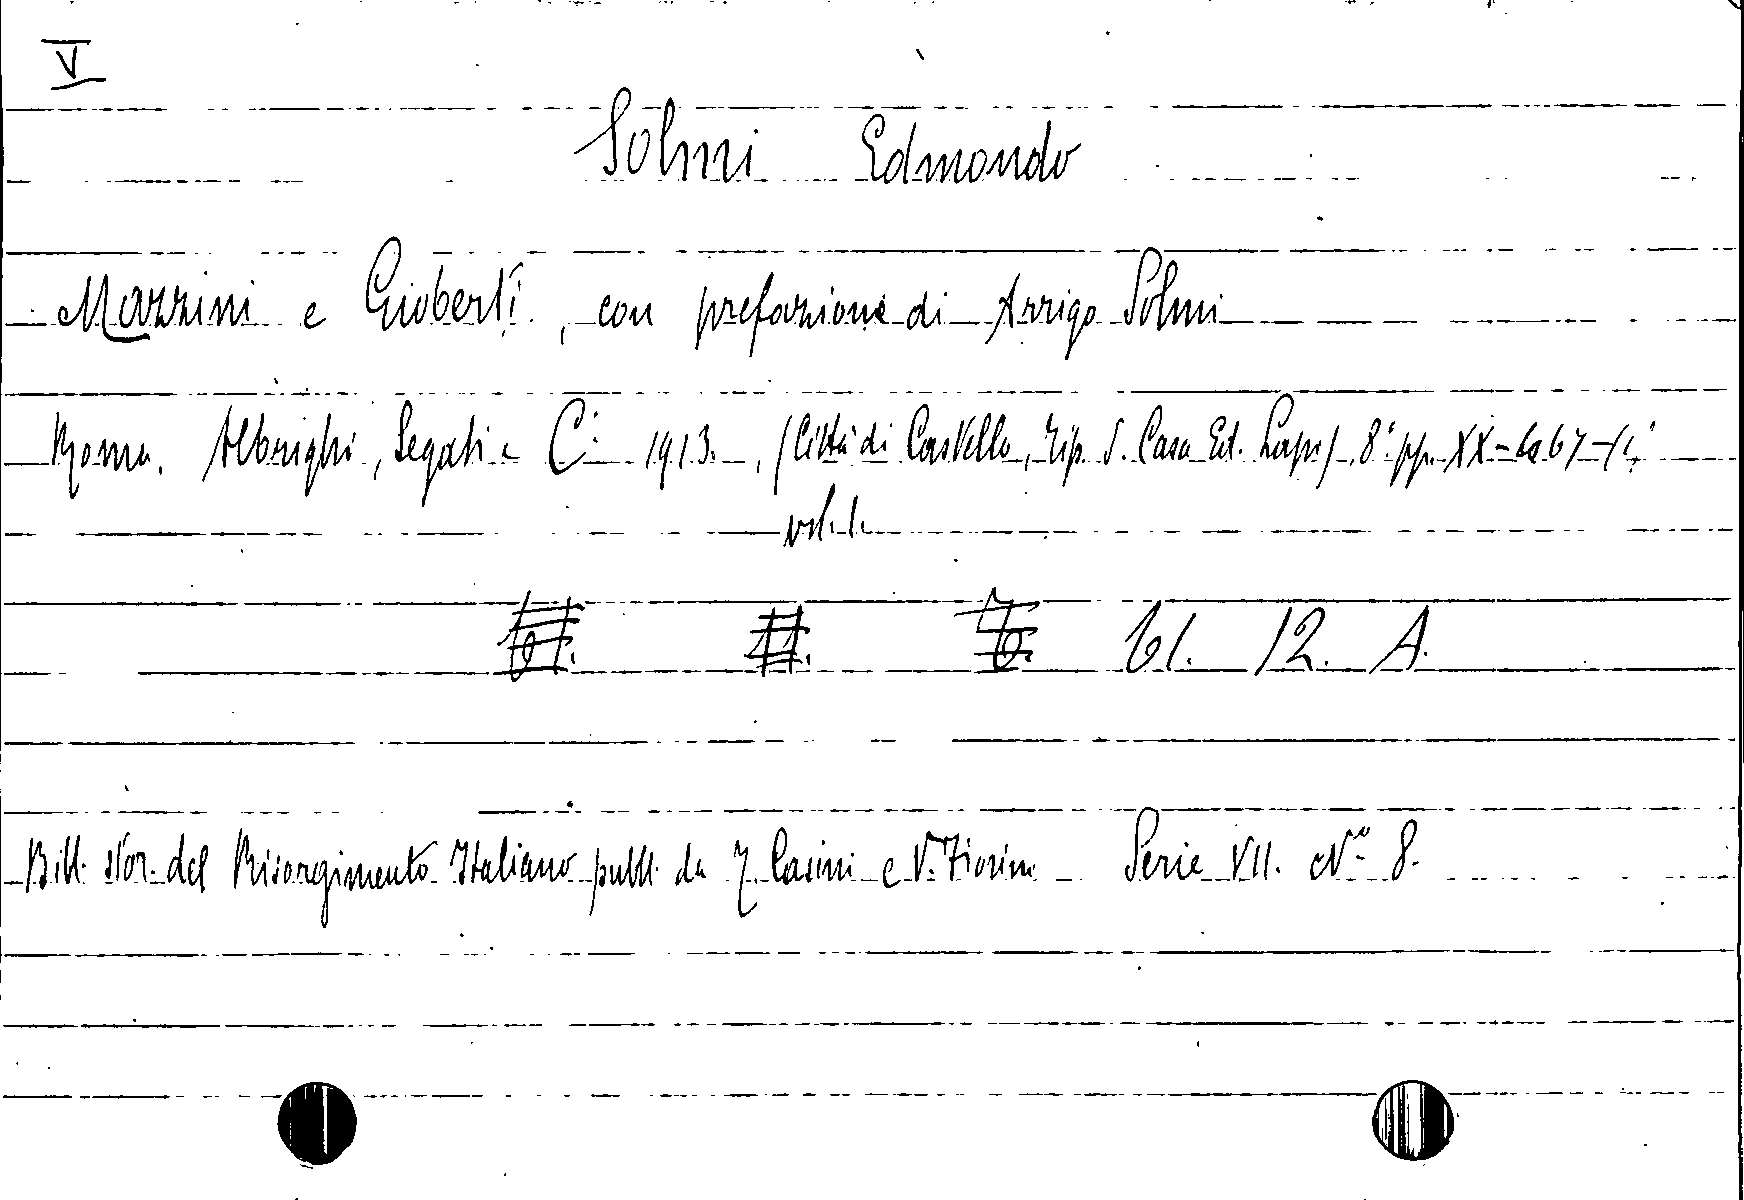 V
Solmi Edmondo
Mazzini e Gioberti, con prefazione di Arrigo Solmi
Roma. Albrighi, Segati e C. 1913. (Città di Castello, Tip. S. Casa Ed. Lapi) 8° pp. XX-
vol. 1.
61. 12. A.
Bibl. stor. del Risorgimento Italiano pubbl. da T. Casini e V. Fiorini Serie VII. N° 8.